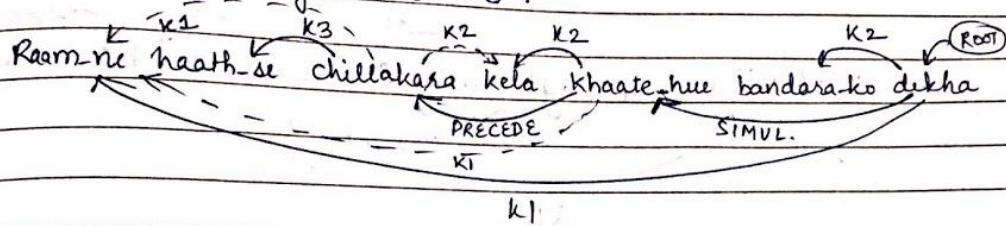 K1 K3 K2 K2 K2 ROOT
Raam_ne haath_se chillakara kela khaate_hue bandara_ko dekha
PRECEDE SIMUL.
K1
K1